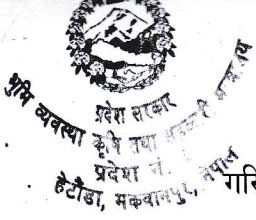 प्रदेश सरकार
भूमि व्यवस्था कृषि तथा सहकारी मन्त्रालय
प्रदेश नं.
हेटौंडा, मकवानपुर, नेपाल
गरि